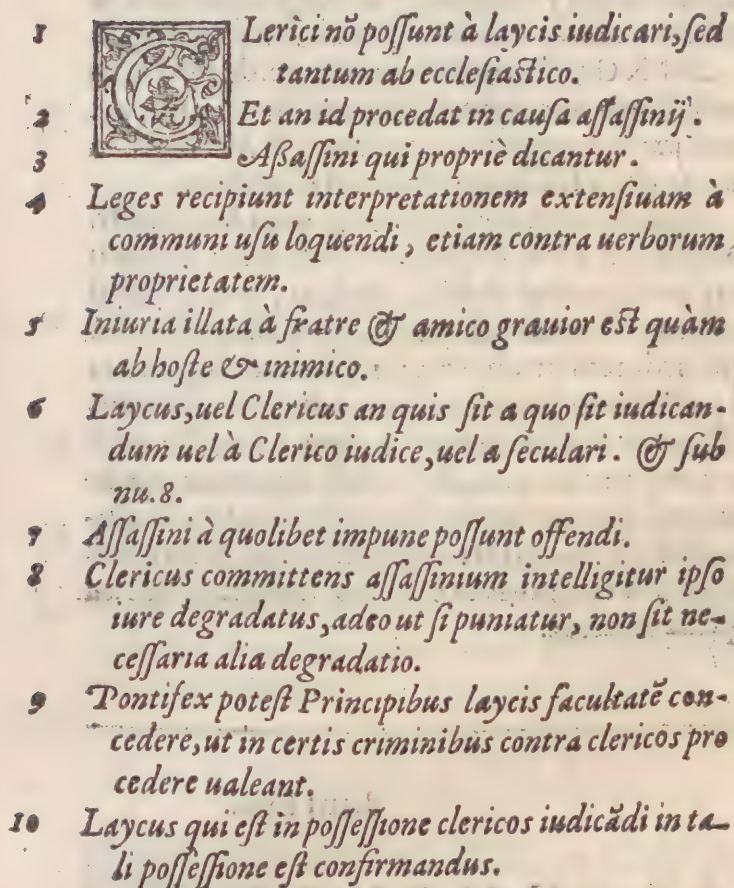 1 CLerici nõ poſſunt à laycis iudicari, ſed
tantum ab eccleſiaſtico.
2 Et an id procedat in cauſa aſſaſſinij.
3 Aßaſſini qui propriè dicantur.
4 Leges recipiunt interpretationem extenſiuam à
communi uſu loquendi, etiam contra uerborum
proprietatem.
5 Iniuria illata à fratre & amico grauior eſt quàm
ab hoſte & inimico.
6 Laycus, uel Clericus an quis ſit a quo ſit iudican-
dum uel à Clerico iudice, uel a ſeculari. & ſub
nu. 8.
7 Aſſaſſini à quolibet impune poſſunt offendi.
8 Clericus committens aſſaſſinium intelligitur ipſo
iure degradatus, adeo ut ſi puniatur, non ſit ne-
ceſſaria alia degradatio.
9 Pontifex poteſt Principibus laycis facultatẽ con-
cedere, ut in certis criminibus contra clericos pro
cedere ualeant.
10 Laycus qui eſt in poſſeſſione clericos iudicãdi in ta-
li poſſeſſione eſt confirmandus.